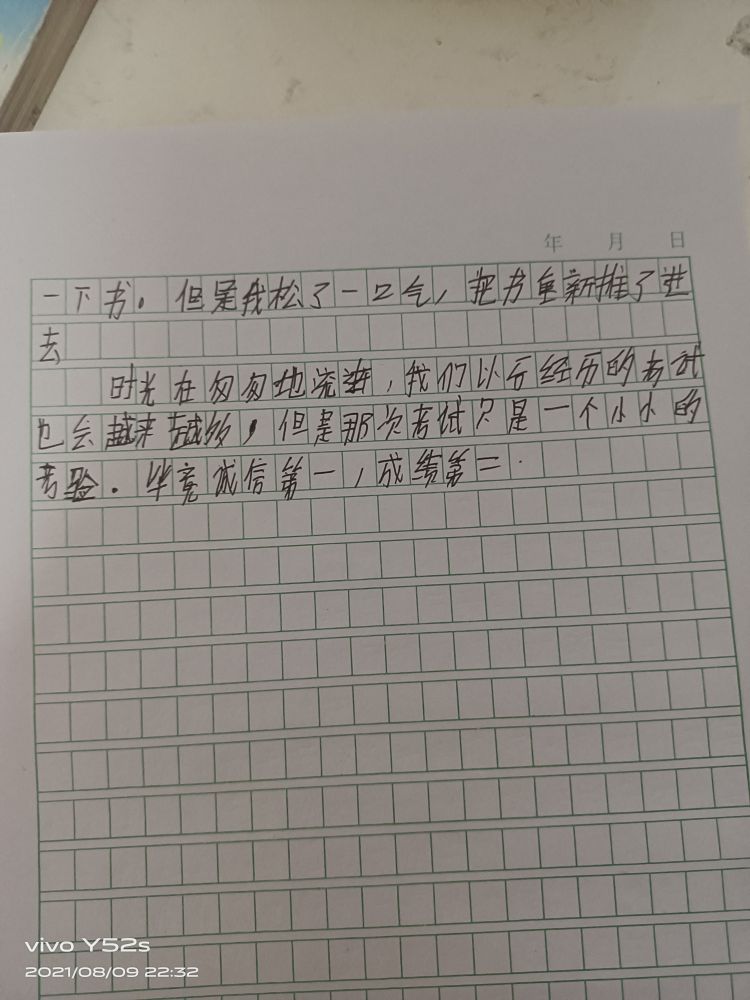 年 月 日
一下书。但是我松了一口气，把书重新推了进
去
时光在匆匆地流逝，我们以后经历的考试
也会越来越多，但是那次考试只是一个小小的
考验。毕竟诚信第一，成绩第二.
vivo Y52s
2021/08/09 22:32